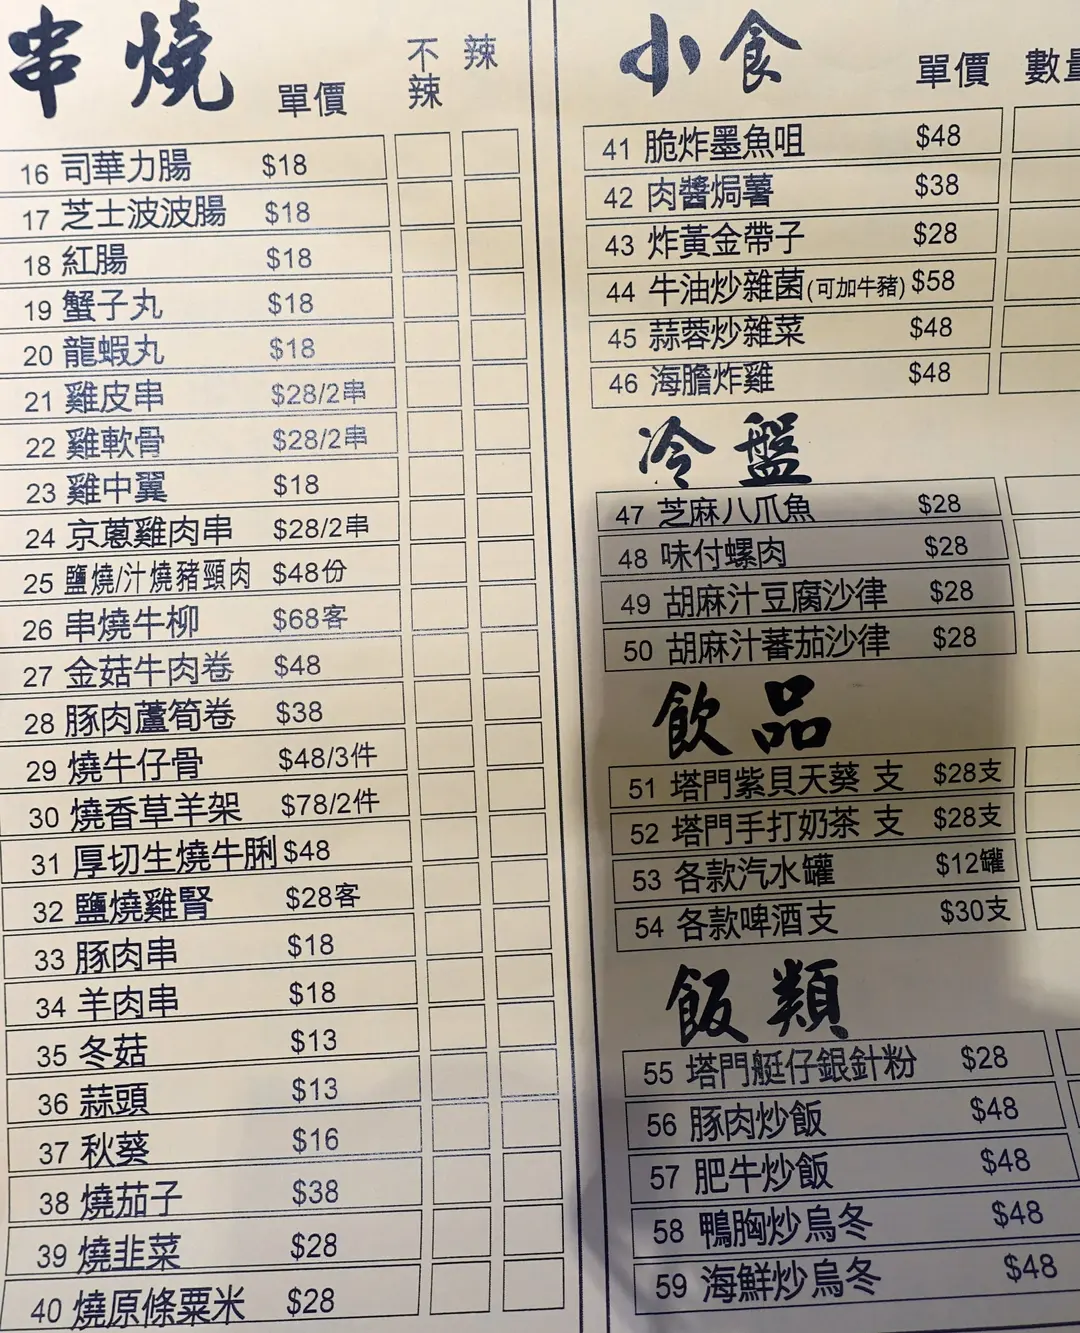 串燒 單價 不辣 辣
16 司華力腸 $18
17 芝士波波腸 $18
18 紅腸 $18
19 蟹子丸 $18
20 龍蝦丸 $18
21 雞皮串 $28/2串
22 雞軟骨 $28/2串
23 雞中翼 $18
24 京蔥雞肉串 $28/2串
25 鹽燒/汁燒豬頸肉 $48份
26 串燒牛柳 $68客
27 金菇牛肉卷 $48
28 豚肉蘆筍卷 $38
29 燒牛仔骨 $48/3件
30 燒香草羊架 $78/2件
31 厚切生燒牛脷 $48
32 鹽燒雞腎 $28客
33 豚肉串 $18
34 羊肉串 $18
35 冬菇 $13
36 蒜頭 $13
37 秋葵 $16
38 燒茄子 $38
39 燒韭菜 $28
40 燒原條粟米 $28
小食 單價 數量
41 脆炸墨魚咀 $48
42 肉醬焗薯 $38
43 炸黃金帶子 $28
44 牛油炒雜菌(可加牛豬) $58
45 蒜蓉炒雜菜 $48
46 海膽炸雞 $48
冷盤
47 芝麻八爪魚 $28
48 味付螺肉 $28
49 胡麻汁豆腐沙律 $28
50 胡麻汁蕃茄沙律 $28
飲品
51 塔門紫貝天葵 支 $28支
52 塔門手打奶茶 支 $28支
53 各款汽水罐 $12罐
54 各款啤酒支 $30支
飯類
55 塔門艇仔銀針粉 $28
56 豚肉炒飯 $48
57 肥牛炒飯 $48
58 鴨胸炒烏冬 $48
59 海鮮炒烏冬 $48